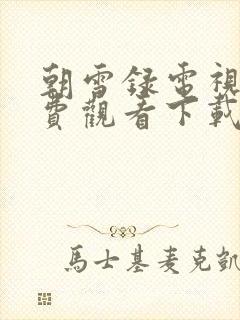 朝雪録電視
費觀看下載
馬士基麦克凱